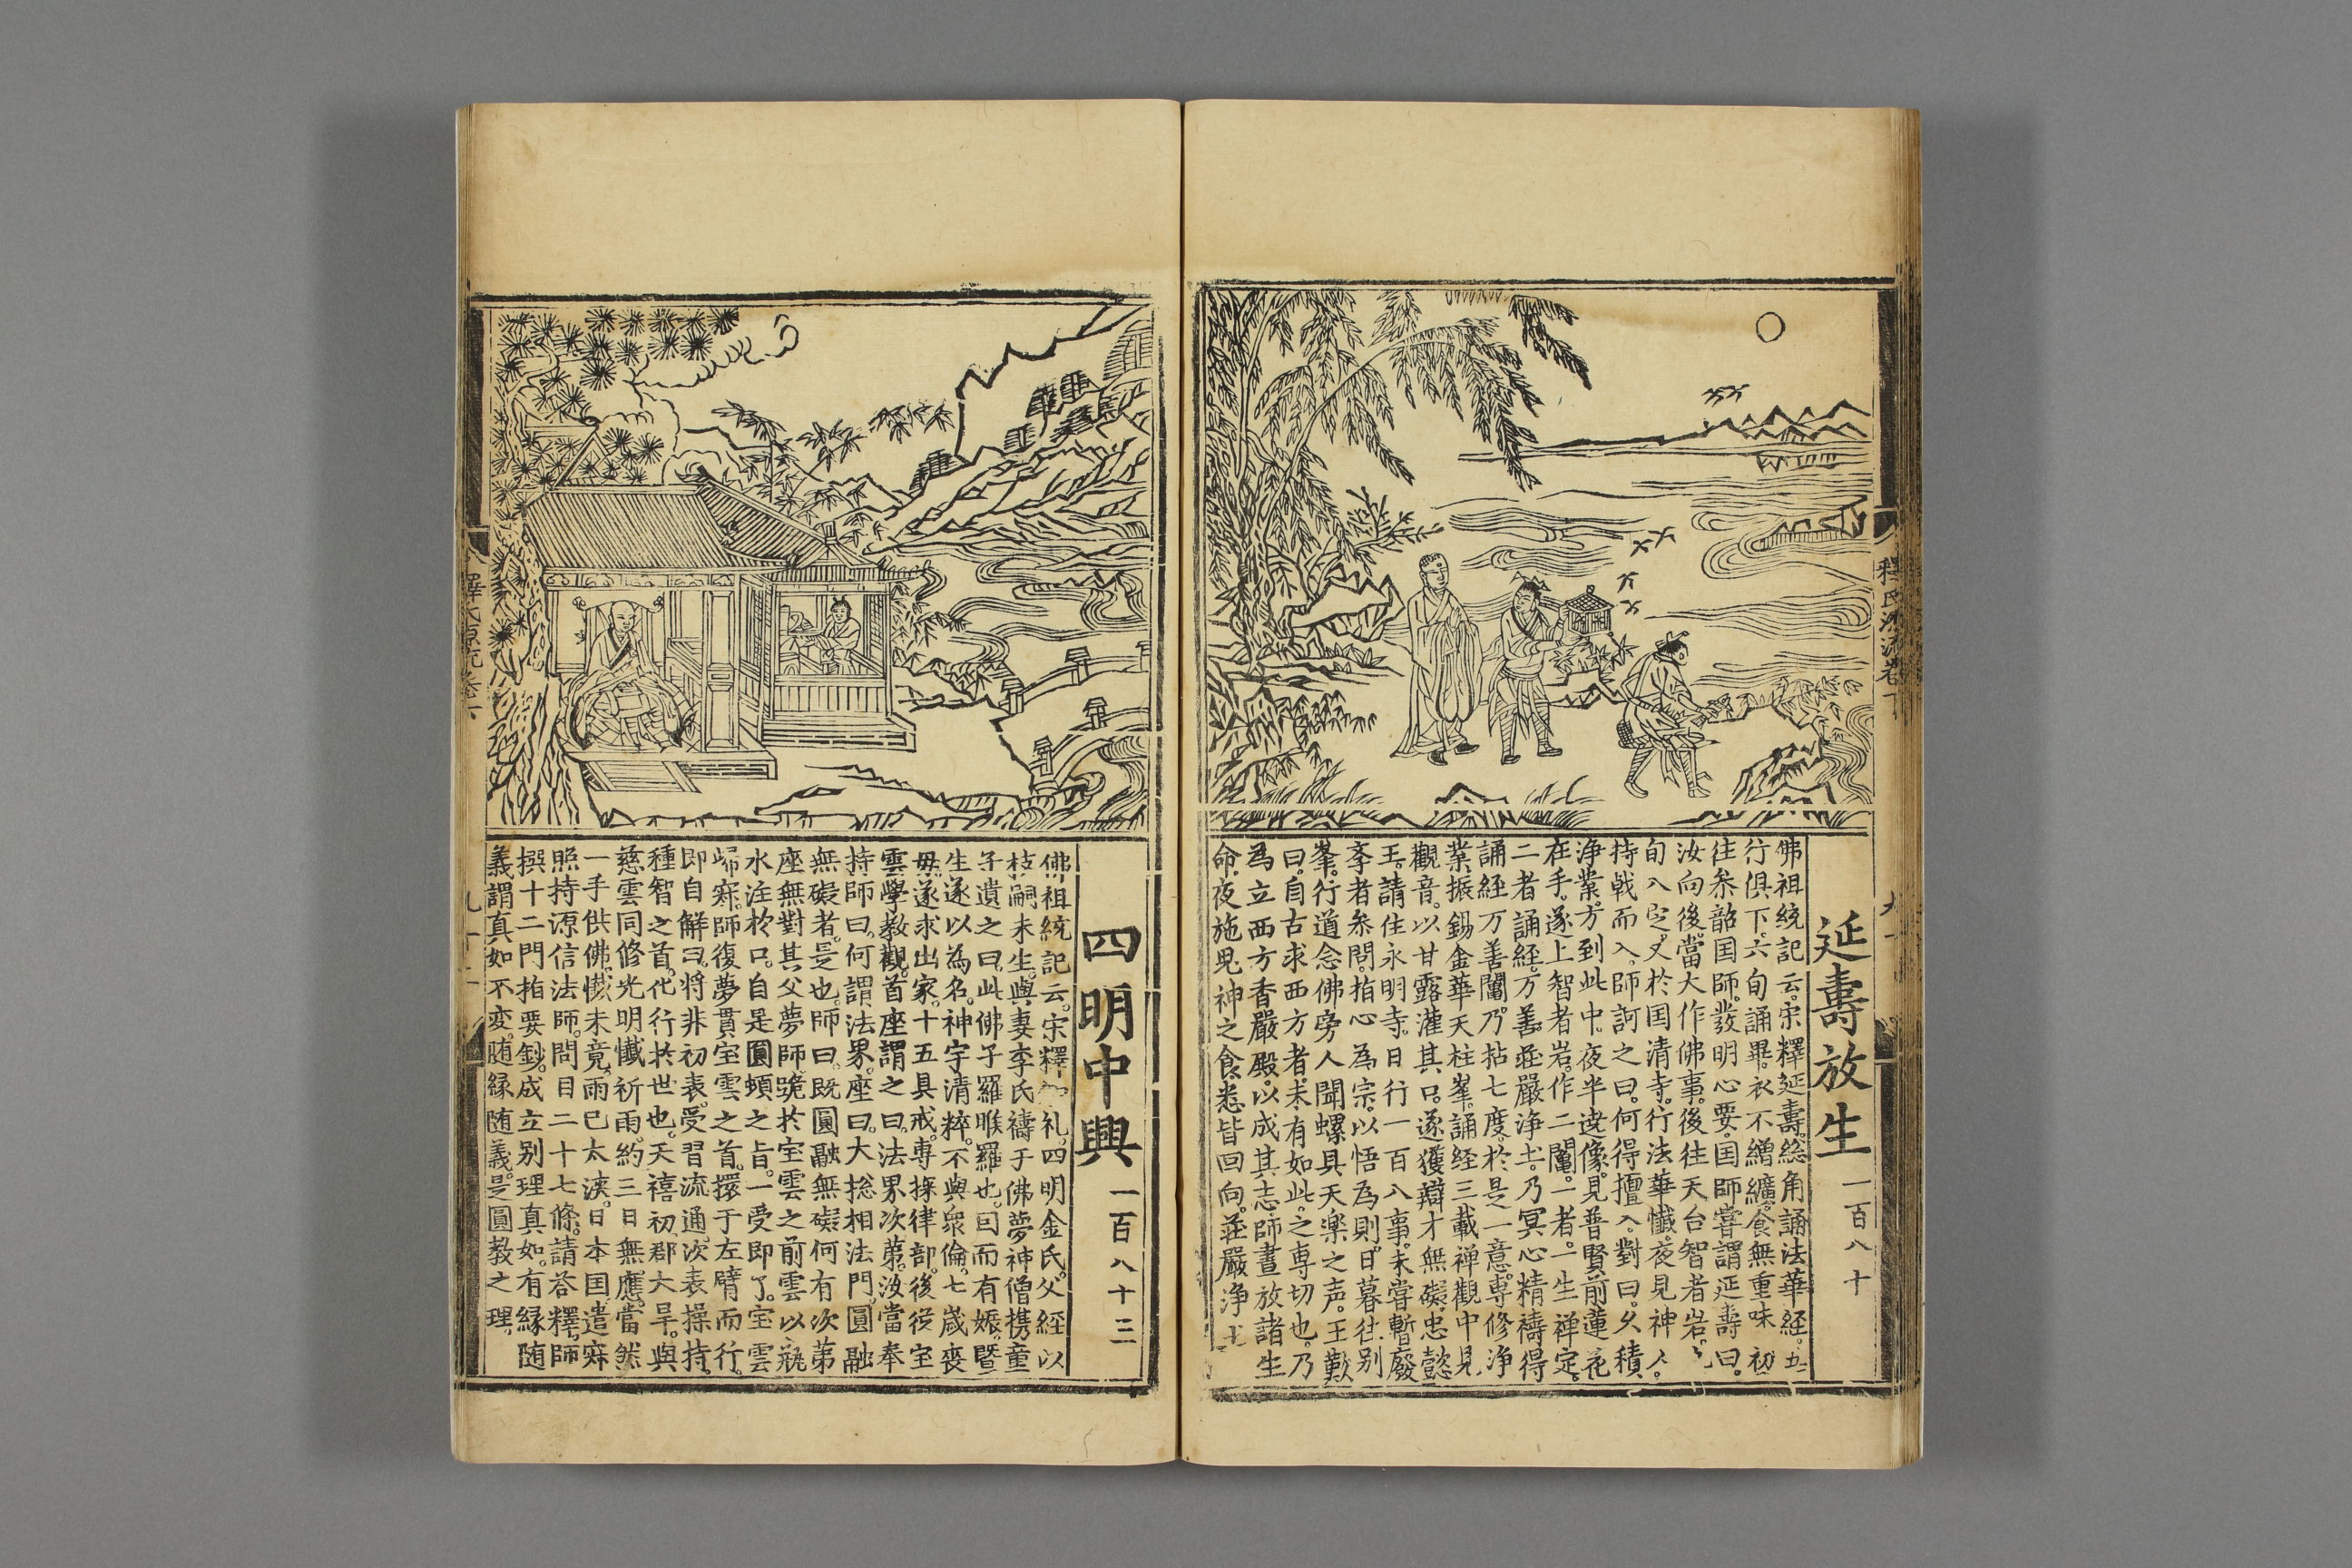 延壽放生 一百八十
佛祖統記云。宋釋延壽。総角誦法華經。五
行俱下。六旬誦畢。衣不繒纊。食無重味。初
往叅韶国師。發明心要。国師嘗謂延壽曰。
汝向後。當大作佛事。後往天台智者岩。九
旬入㝎。又於国清寺。行法華懺。夜見神人。
持戟而入。師訶之曰。何得擅入。對曰。久積
浄業。方到此中。夜半遶像。見普賢前蓮花
在手。遂上智者岩。作二䦰。一者。一生禅定。
二者誦経。万善莊嚴浄土。乃冥心精禱。得
誦経万善䦰。乃拈七度。於是一意。專修浄
業。振錫金華天柱峯。誦経三載。禅觀中見
觀音。以甘露灌其口。遂獲辯才無礙。忠懿
王。請住永明寺。日行一百八事。未嘗暫廢
孝者叅問。指心為宗。以悟為則。日暮往别
峯。行道念佛。旁人聞螺具天楽之声。王歎
曰。自古求西方者。未有如此之專切也。乃
為立西方香嚴殿。以成其志。師晝放諸生
命。夜施鬼神之食。悉皆回向。莊嚴浄土
四明中興 一百八十二
佛祖統記云。宋釋知礼。四明金氏。父経以
枝嗣未生。與妻李氏禱于佛。夢神僧携童
子遺之曰。此佛子羅睺羅也。囙而有娠。曁
生遂以為名。神宇清粹。不與衆倫。七歳丧
母。遂求出家。十五具戒。專探律部。後從宝
雲學教觀。首座謂之曰。法界次第。汝當奉
持。師曰。何謂法界。座曰。大捴相法門。圓融
無礙者。是也。師曰。既圓融無礙。何有次第
座無對。其父夢師跪於宝雲之前。雲以瓶
水注於口。自是圓頓之旨。一受即了。宝雲
歸寂。師復夢貫宝雲之首。擐于左臂而行。
即自解曰。将非初表受習流通。次表操持
種智之首。化行於世也。天禧初。郡大旱。與
慈雲同修光明懺祈雨。約三日無應。當然
一手供佛。懺未竟。雨已太浹。日本国。遣寂
照。持源信法師。問目二十七條。請荅釋。師
撰十二門指要鈔。成立别理真如。有縁随
義。謂真如不变。随縁随義。是圓教之理。